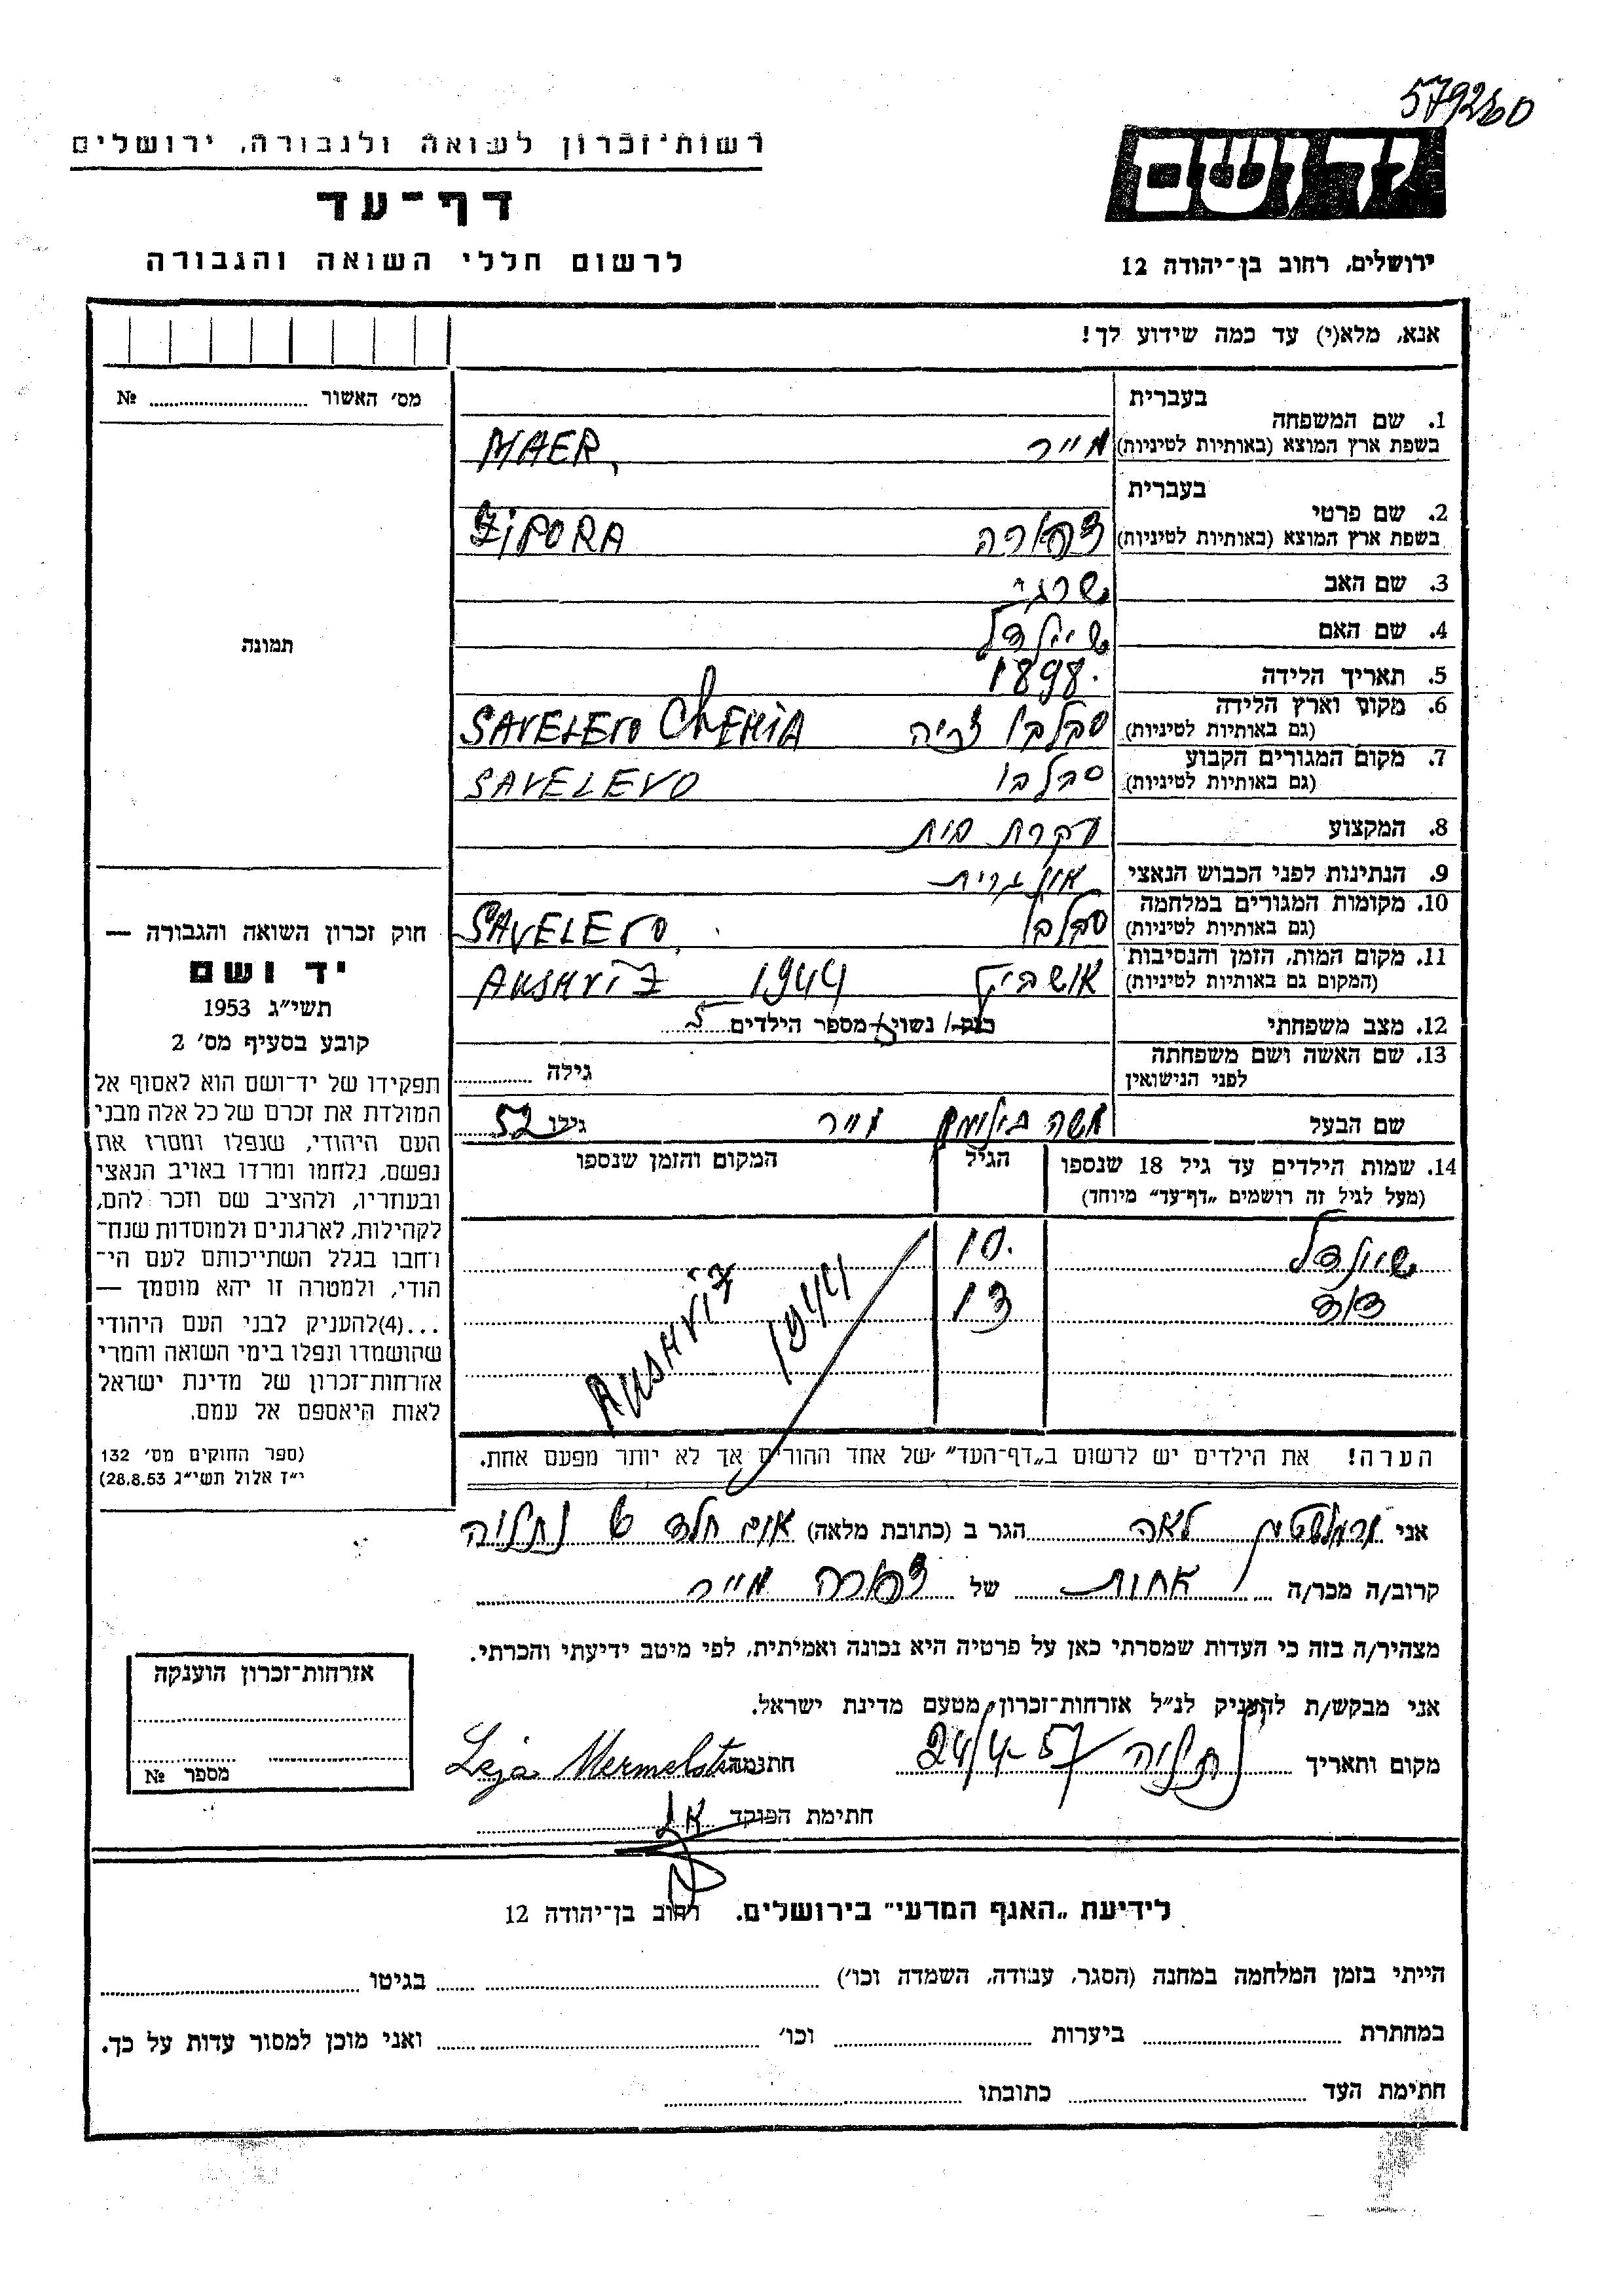 579260
רשות־זכרון לשואה ולגבורה, ירושלים
יד ושם
דף־עד
לרשום חללי השואה והגבורה
ירושלים, רחוב בן־יהודה 12
אנא, מלא(י) עד כמה שידוע לך!
מס' האשור № 
1. שם המשפחה בעברית
בשפת ארץ המוצא (באותיות לטיניות) מייר MAER
2. שם פרטי בעברית
בשפת ארץ המוצא (באותיות לטיניות) צפורה ZIPORA
3. שם האב שרגי
4. שם האם שיינדל
5. תאריך הלידה 1898
6. מקום וארץ הלידה
(גם באותיות לטיניות) סבלבו צכיה SAVELEVO CHEHIA
7. מקום המגורים הקבוע
(גם באותיות לטיניות) סבלבו SAVELEVO
8. המקצוע עקרת בית
9. הנתינות לפני הכבוש הנאצי אונגרית
10. מקומות המגורים במלחמה
(גם באותיות לטיניות) סבלבו SAVELEVO
11. מקום המות, הזמן והנסיבות
(המקום גם באותיות לטיניות) אושביץ 1944 AUSHVIZ
12. מצב משפחתי נשוי/ מספר הילדים 5
13. שם האשה ושם משפחתה
לפני הנישואין גילה
שם הבעל משה מייר גילו 52
14. שמות הילדים עד גיל 18 שנספו הגיל המקום והזמן שנספו
(מעל לגיל זה רושמים „דף־עד” מיוחד)
שיינדל 10
דוד 13
AUSHVIZ 1944
הערה! את הילדים יש לרשום ב„דף־העד” של אחד ההורים אך לא יותר מפעם אחת.
תמונה
חוק זכרון השואה והגבורה —
יד ושם
תשי״ג 1953
קובע בסעיף מס' 2
תפקידו של יד־ושם הוא לאסוף אל
המולדת את זכרם של כל אלה מבני
העם היהודי, שנפלו ומסרו את
נפשם, נלחמו ומרדו באויב הנאצי
ובעוזריו, ולהציב שם וזכר להם,
לקהילות, לארגונים ולמוסדות שנח־
רחבו בגלל השתייכותם לעם הי־
הודי, ולמטרה זו יהא מוסמך —
...(4)להעניק לבני העם היהודי
שהושמדו ונפלו בימי השואה והמרי
אזרחות־זכרון של מדינת ישראל
לאות היאספם אל עמם.
(ספר החוקים מס' 132
י״ז אלול תשי״ג 28.8.53)
אני מרמלשטין לאה הגר ב (כתובת מלאה) נתניה
קרוב/ה מכר/ה אחות של צפורה מייר
מצהיר/ה בזה כי העדות שמסרתי כאן על פרטיה היא נכונה ואמיתית, לפי מיטב ידיעתי והכרתי.
אני מבקש/ת להעניק לנ״ל אזרחות־זכרון מטעם מדינת ישראל.
מקום ותאריך נתניה 24/4-57 חתימה Leja Mermelstein
חתימת הפוקד
אזרחות־זכרון הוענקה
מספר №
לידיעת „האגף המדעי” בירושלים. רחוב בן־יהודה 12
הייתי בזמן המלחמה במחנה (הסגר, עבודה, השמדה וכו') בגיטו
במחתרת ביערות וכו' ואני מוכן למסור עדות על כך.
חתימת העד כתובתו